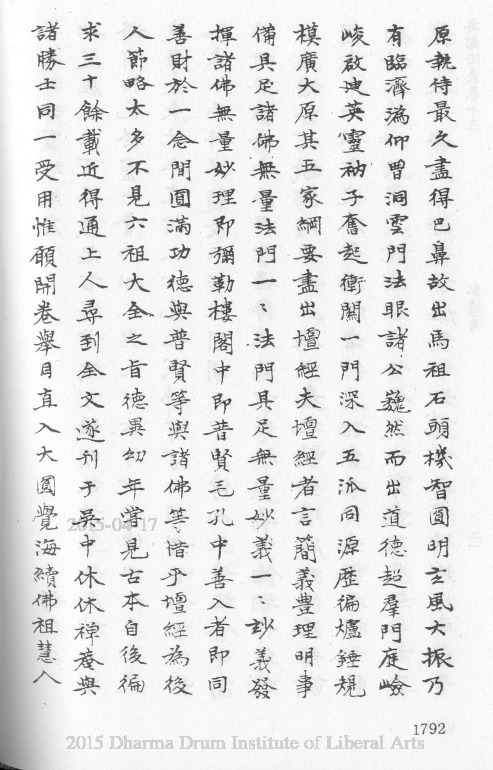 原執侍最久盡得巴鼻故出馬祖石頭機智圓明玄風大振乃
有臨濟溈仰曹洞雲門法眼諸公巍然而出道德超羣門庭嶮
峻啟迪英靈衲子奮起衝關一門深入五派同源歷徧爐錘規
模廣大原其五家綱要盡出壇經夫壇經者言簡義豐理明事
備具足諸佛無量法門一〻法門具足無量妙義一〻妙義發
揮諸佛無量妙理即彌勒樓閣中即普賢毛孔中善入者即同
善財於一念間圓滿功德與普賢等與諸佛等惜乎壇經為後
人節略太多不見六祖大全之旨德異幼年嘗見古本自後徧
求三十餘載近得通上人尋到全文遂刊于吳中休休禪菴與
諸勝士同一受用惟願開卷舉目直入大圓覺海續佛祖慧人
1792
2015-04-17
2015 Dharma Drum Institute of Liberal Arts